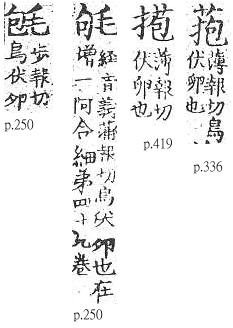 菢
薄報切鳥
伏卵也
p.336
薄報切
伏卵也
p.419
經音義薄報切鳥伏卵也在
增一阿合細第四十九卷
p.250
步報切
鳥伏卵
p.250